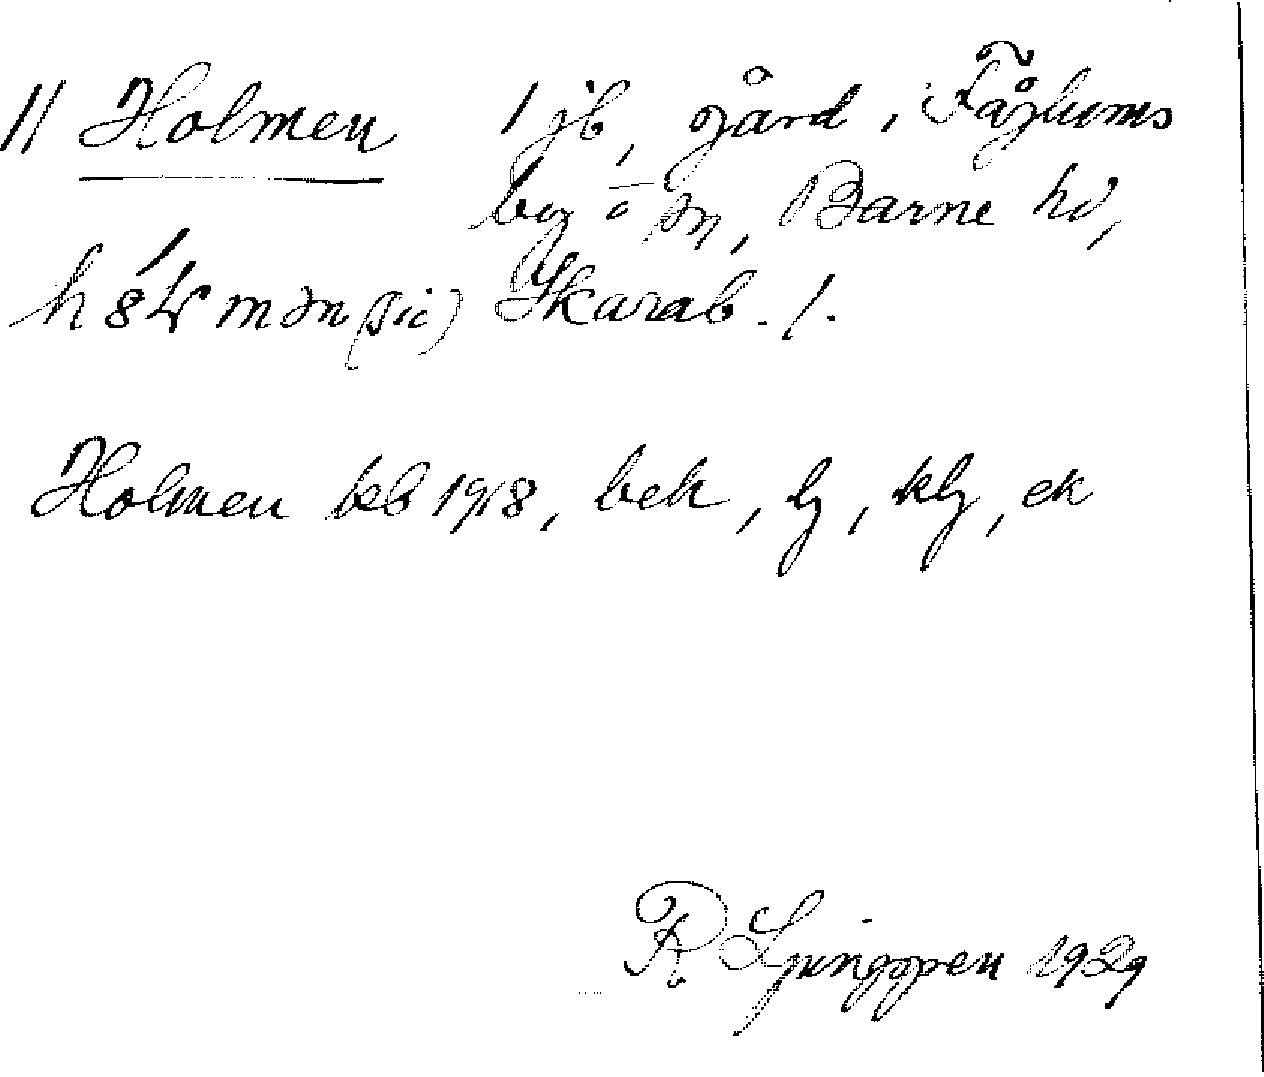 11 Holmen 1 jb, gård, Fåglums
by o sn, Barne hd,
(sic) Skarab. l.
Holmen beb 1918, bek, lj, klj, ek
R Ljunggren 1929